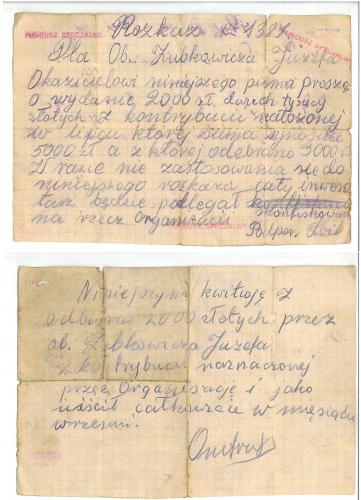 Rozkaz № 1384
FUNDUSZ SPECJALNY
FUNDUSZ SPECJALNY
Dla Ob. Zubkowicza Józefa
Okazicielowi niniejszego pisma proszę
o wydanie 2000 zł. dwóch tysięcy
złotych z kontrybucii nałożonej
w lipcu której suma wynosiła
5000 zł a z której odebrano 3000 zł
W razie nie zastosowania się do
niniejszego rozkazu cały inwen
tarz będzie podlegał
skonfiskowaniu
na rzecz Organizacii
SPECJALNY
Niniejszym kwituję z
odbioru 2000 złotych przez
ob. Zubkowicza Józefa
z kontrybucii naznaczonej
przez Organizację i jako
uiścił całkowicie w miesiącu
wrzesniu.